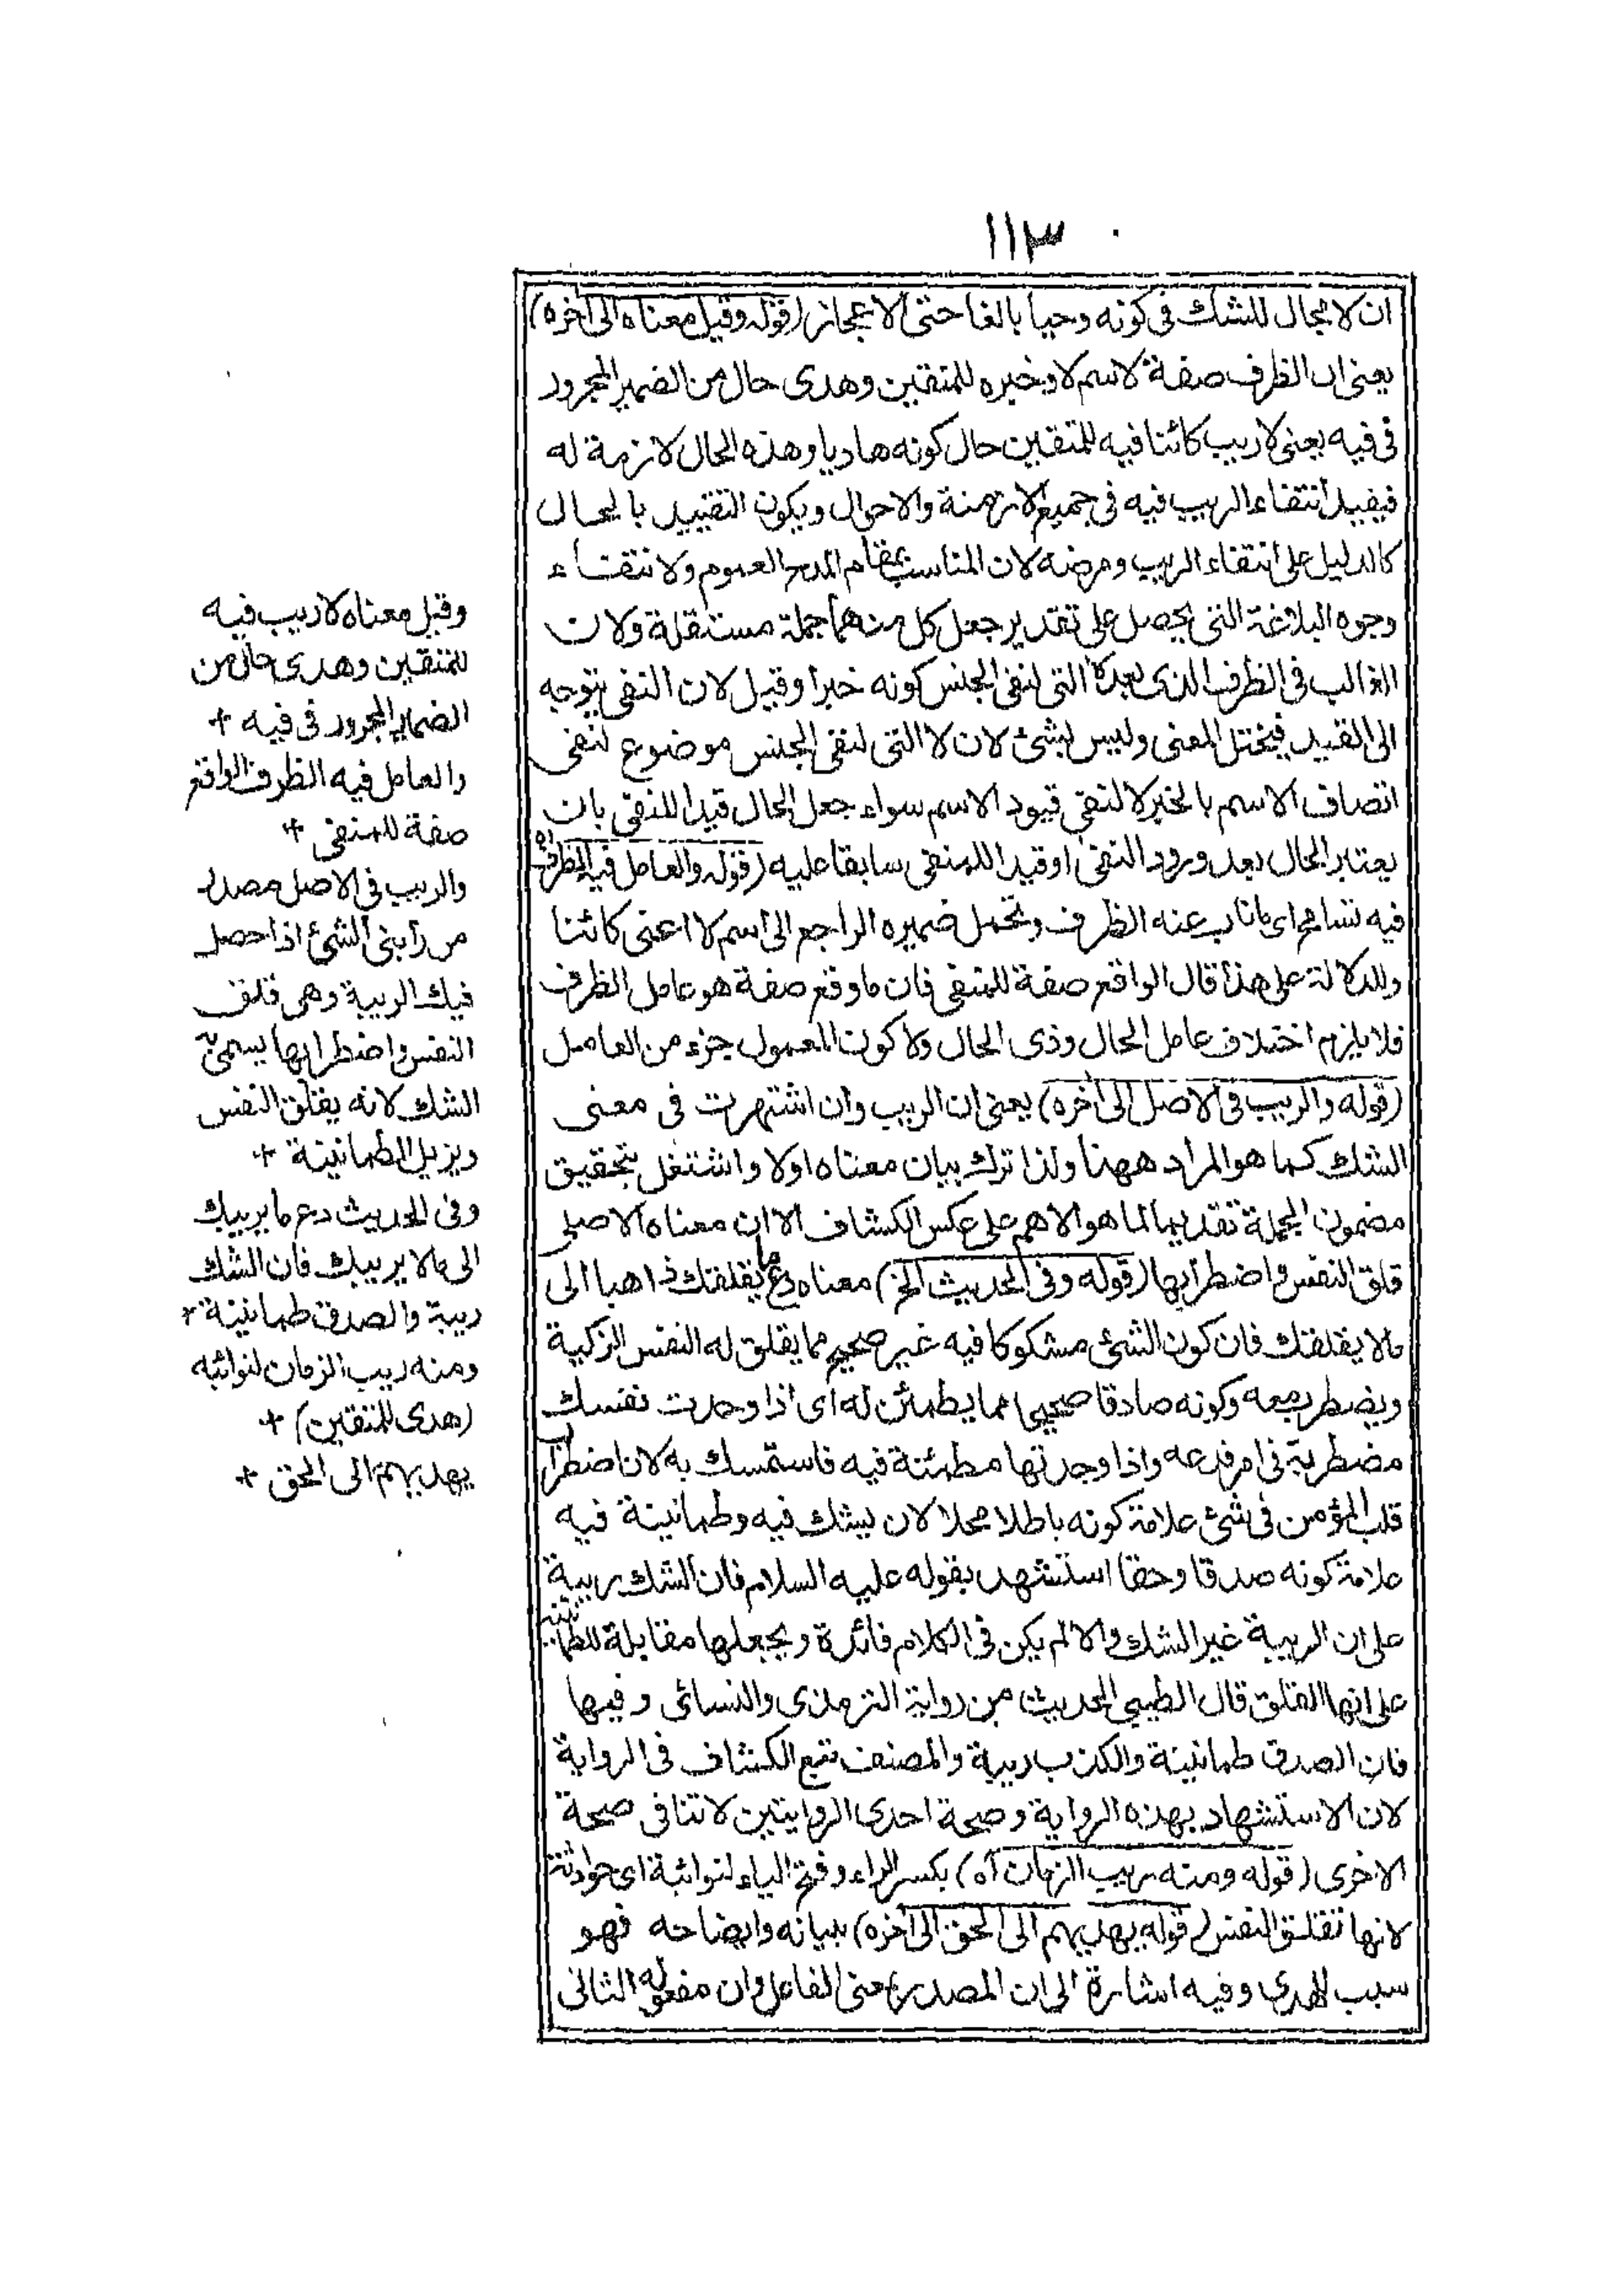 ١١٣
ان لا مجال للشك فى كونه وحيا بالغا حتى الاعجاز (قوله وقيل معناه الى اخره)
يعنى ان الظرف صفة لاسم لا وخبره للمتقين وهدى حال من الضمير المجرور
فى فيه يعنى لا ريب كائنا فيه للمتقين حال كونه هاديا وهذه الحال لازمة له
فيفيد انتفاء الريب فيه فى جميع الازمنة والاحوال ويكون التقييد بالحال
كالدليل على انتفاء الريب ومرضه لان المناسب بمقام المدح العموم ولانتفاء
وجوه البلاغة التى يحصل على تقدير جعل كل منهما جملة مستقلة ولان
الغالب فى الظرف الذى بعد لا التى لنفى الجنس كونه خبرا وقيل لان النفى يتوجه
الى القيد فيختل المعنى وليس بشئ لان لا التى لنفى الجنس موضوع لنفى
اتصاف الاسم بالخبر لا لنفى قيود الاسم سواء جعل الحال قيدا للنفى بان
يعتبر الحال بعد ورود النفى او قيدا للمنفى سابقا عليه (قوله والعامل فيه الظرف اه)
فيه تسامح اى ما ناب عنه الظرف وتحمل ضميره الراجع الى اسم لا اعنى كائنا
وللدلالة على هذا قال الواقع صفة للمنفى فان ما وقع صفة هو عامل الظرف
فلا يلزم اختلاف عامل الحال وذى الحال ولا كون المعمول جزء من العامل
(قوله والريب فى الاصل الى اخره) يعنى ان الريب وان اشتهرت فى معنى
الشك كما هو المراد ههنا ولذا ترك بيان معناه اولا واشتغل بتحقيق
مضمون الجملة تقديما لما هو الاهم على عكس الكشاف الا ان معناه الاصلى
قلق النفس واضطرابها (قوله وفى الحديث الخ) معناه دع ما يقلقك ذاهبا الى
مالا يقلقك فان كون الشئ مشكوكا فيه غير صحيح مما يقلق له النفس الزكية
ويضطرب معه وكونه صادقا صحيحا مما يطمئن له اى اذا وجدت نفسك
مضطربة فى امر فدعه واذا وجدتها مطمئنة فيه فاستمسك به لان اضطراب
قلب المؤمن فى شئ علامة كونه باطلا محلا لان يشك فيه وطمانينة فيه
علامة كونه صدقا وحقا استشهد بقوله عليه السلام فان الشك ريبة
على ان الريبة غير الشك والا لم يكن فى الكلام فائدة وبجعلها مقابلة للطمانينة
على انها القلق قال الطيبى الحديث من رواية الترمذى والنسائى وفيها
فان الصدق طمانينة والكذب ريبة والمصنف تبع الكشاف فى الرواية
لان الاستشهاد بهذه الرواية وصحة احدى الروايتين لا تنافى صحة
الاخرى (قوله ومنه ريب الزمان اه) بكسر الراء وفتح الياء لنوائبة اى حوادثة
لانها تقلق النفس (قوله يهديهم الى الحق الى اخره) ببيانه وايضاحه فهو
سبب للهدى وفيه اشارة الى ان المصدر بمعنى الفاعل وان مفعوله الثانى
وقيل معناه لا ريب فيه
للمتقين وهدى حال من
الضمير المجرور فى فيه +
والعامل فيه الظرف الواقع
صفة للمنفى +
والريب فى الاصل مصدر
من رابنى الشئ اذا حصل
فيك الريبة وهى قلق
النفس واضطرابها يسمى به
الشك لانه يقلق النفس
ويزيل الطمانينة +
وفى الحديث دع ما يريبك
الى مالا يريبك فان الشك
ريبة والصدق طمانينة +
ومنه ريب الزمان لنوائبه
(هدى للمتقين) +
يهديهم الى الحق +